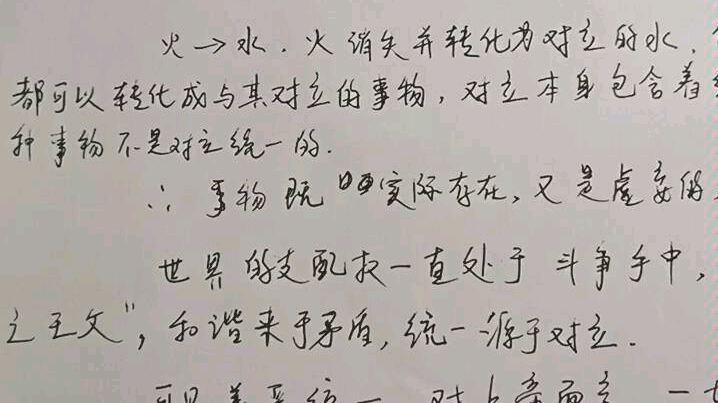 火→水. 火消失并转化为对立的水,
都可以转化成与其对立的事物, 对立本身包含着
种事物不是对立统一的.
∴ 事物既 实际存在, 又是虚妄的
世界的支配权一直处于斗争手中,
之王父", 和谐来于矛盾, 统一源于对立.
可见 统一 对